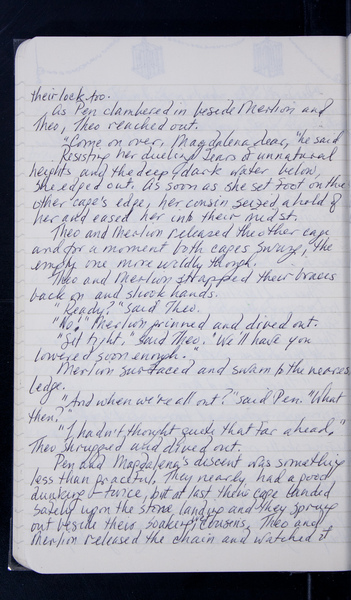 their lock too.
As Pen clambered in beside Merlion and
Theo, Theo reached out.
"Come on over, Magdalena dear," he said
Resisting her dueling fears of unnatural
heights and the deep dark water below,
she edged out. As soon as she set foot on the
other cage's edge, her cousin seized ahold of
her and eased her into their midst.
Theo and Merlion released the other cage
and for a moment both cages swung, the
empty one more wildly though.
Theo and Merlion strapped their braces
back on and shook hands.
"Ready?" said Theo.
"No." Merlion grinned and dived out.
"Sit tight," said Theo. "We'll have you
lowered soon enough."
Merlion surfaced and swam to the nearest
ledge.
"And when we're all out?" said Pen. "What
then?"
"I hadn't thought quite that far ahead,"
Theo shrugged and dived out.
Pen and Magdalena's descent was something
less than graceful. They nearly had a good
dunking twice, but at last their cage landed
safely upon the stone landing and they sprang
out beside their soaking cousins. Theo and
Merlion released the chain and watched it